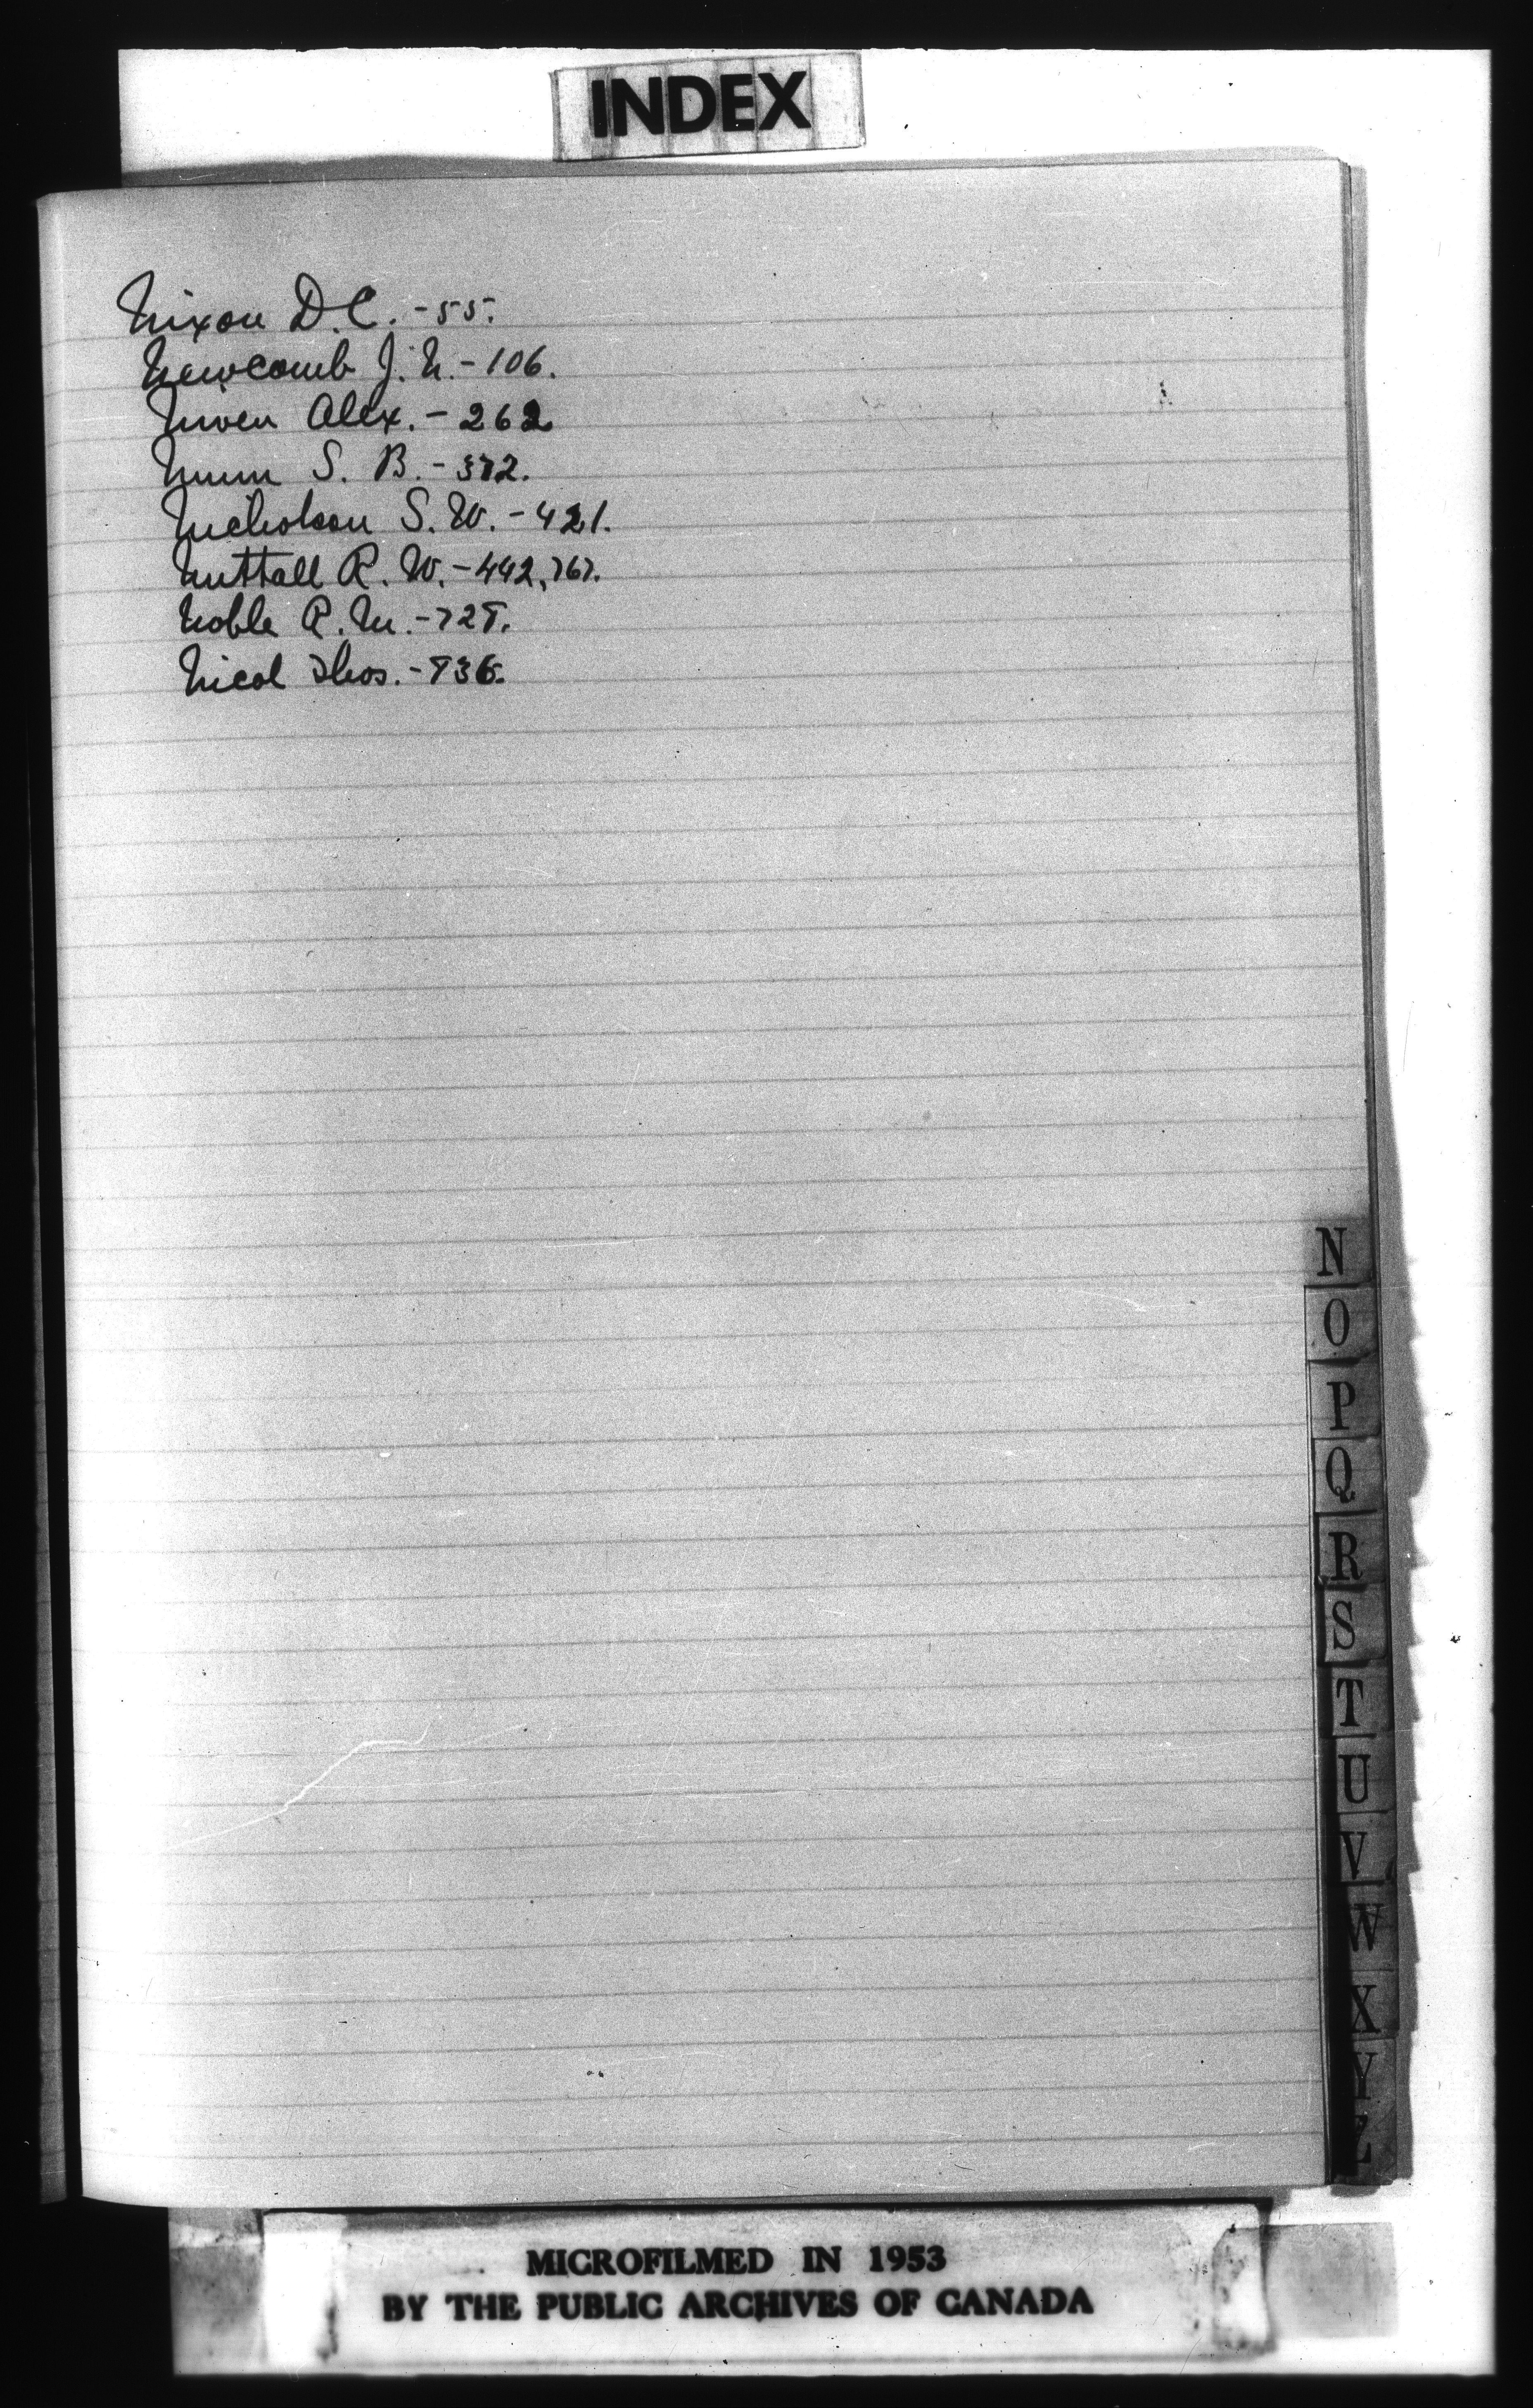 INDEX
Nixon D.C. - 55.
Newcomb J. N. - 106.
Niven Alex. - 262
Nunn S. B. - 372.
Nicholson S. W. - 421.
Nuttall R. W. - 442, 767.
Noble R. M. - 728.
Nicol Thos. - 836.
N
O
P
Q
R
S
T
U
V
W
X
Y
Z
MICROFILMED IN 1953
BY THE PUBLIC ARCHIVES OF CANADA